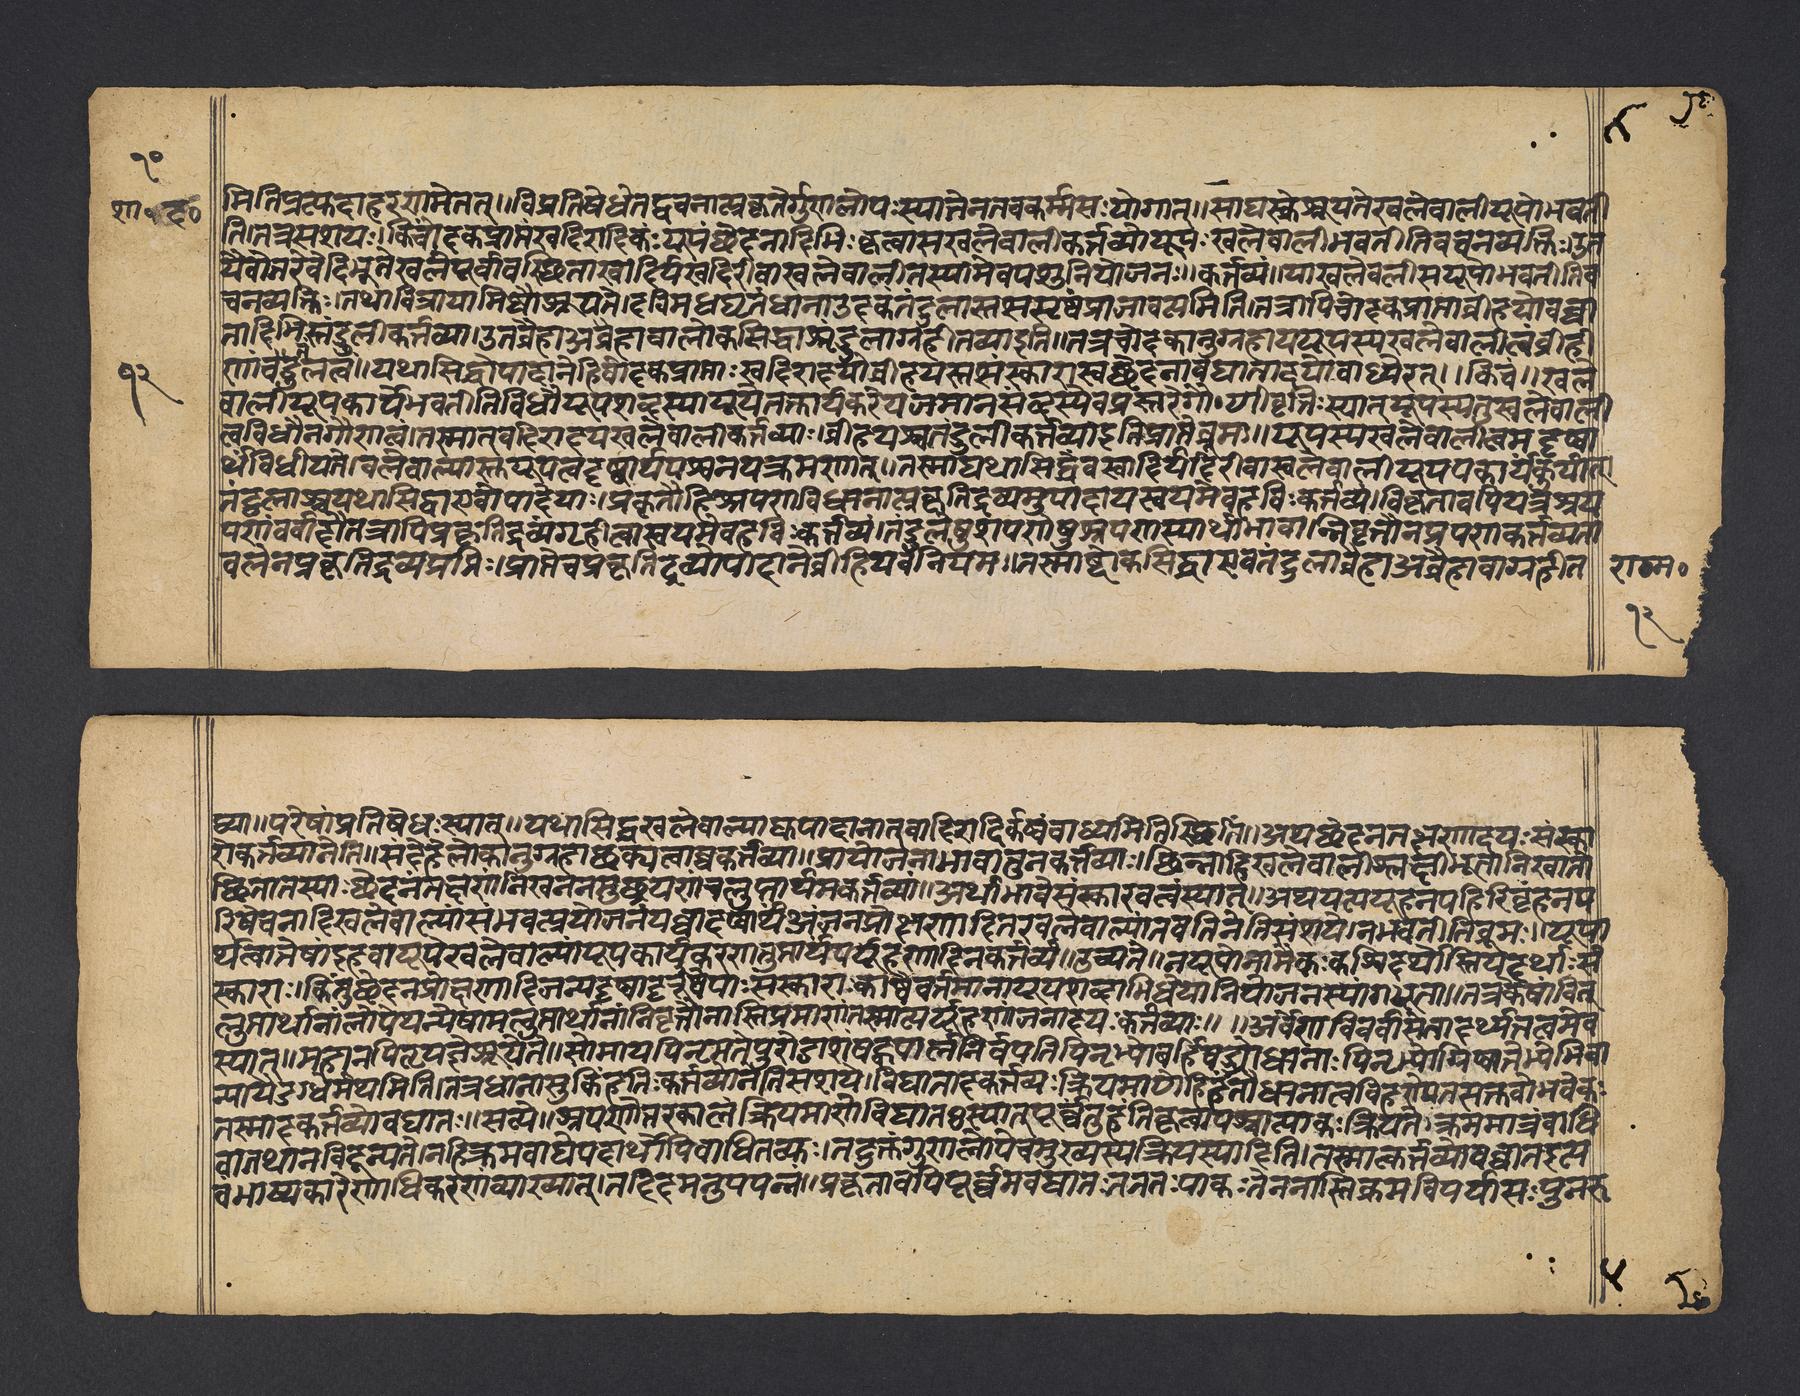 १०
शा॰ द०
१२
मितिप्रत्पुदाहरणमेतत्॥विप्रतिषेधेतद्वचनात्प्रकृतेर्गुणलोपःस्यात्तेनतवकर्म्मसःयोगात्॥साद्यस्क्रेश्रूयतेखलेवालीयूपोभवती
ति।तत्रसंशयः।किंचोदकप्राप्तंखदिरादिकंःयूपंच्छेदनादिभिःकृत्वासखलेवालीकर्त्तव्योयूपःखलेवालीभवतीतिवचनव्यक्तिः।उत
यैवोत्तरवेदिभूतेखलेपूर्वावस्छितास्वादिर्यखदिरीवाखलेवालीतस्यामेवपशुनियोजनः॥कर्त्तव्यं॥याखलेवलीसयूपोभवतीतिव
चनव्यक्तिः।तथाचित्रायामिष्टौश्रूयते।दधिमधुघृतंधानाउदकंतंदुलास्तत्संसृष्टंप्राजापत्यमिति।तत्रापिचोदकप्राप्ताव्रीहयोवघा
तादिभिस्तंदुलीकर्त्तव्या।उतव्रैहाअव्रैहावालोकसिद्धाश्चतंदुलाग्रहीतव्याइति॥तत्रचोदकानुग्रहाययूपस्यखलेवालीत्वंव्रीही
णांचतंदुलत्वं॥यथासिद्धोपादानेहिचोदकप्राप्ताःखदिरादयोव्रीहयस्तसंस्काराश्चच्छेदनावघातादयोवाध्येरन्।।किंच॥खले
वालीयूपकार्येभवतीतिविधौयूपशब्दस्यायूर्येतत्कार्यकरेयजमानसब्दस्येवप्रस्तरेगौ॰णीवृत्तिःस्यात्यूपस्यतुखलेवाली
त्वविधौनगौणत्वं।तस्मात्वदिरादयखलेवालीकर्त्तव्याः।व्रीहयश्चतंदुलीकर्त्तव्याइतिप्राप्तेब्रूमः॥यूपस्यखलेवालीत्वमदृष्टा
र्थंविधीयते।खलेवाल्यास्तयूपत्वदृष्टार्थंपश्वनपक्रमणात्॥तस्माद्यथासिद्धेवखादिर्यदिरीवाखलेवालीयूपपकार्येकुर्यात्।
तंदुलाश्चयथासिद्धाएवोपादेयाः।प्रकृतौहिश्रपणविधानात्प्रकृतिद्रव्यमुपादायस्वयमेवहविःकर्त्तव्यं।विकृतावपियत्रश्रय
पणंचर्वादौतत्रापिप्रकृतिद्रव्यंगृहीत्वास्वयमेवहविःकर्त्तव्यं।तंदुलेषुशपणेषुश्रपणस्यार्थाभावा।न्निवृत्तौनप्रपणकर्त्तव्यता
वलेनप्रकृतिद्रव्यप्रप्तिः।प्राप्तेचप्रकृतिद्रव्योपादानेव्रीहियवेनियम॥तस्माल्लोकसिद्धाएवतंदुलाव्रैहाअव्रैहावाग्रहीत
राम०
१२
व्या॥परेषांप्रतिषेधःस्यात्॥यथासिद्धखलेवाल्याह्युपादानात्वादिरादिर्कष्वंवाध्यमितिस्छितिं॥अथछेदनतक्षणादयःसंस्का
राकर्त्तव्यानेति॥संदेहेलोकानुग्रहाछक्यत्वाच्चकर्त्तव्या॥प्रायोजनाभावात्तुनकर्त्तव्याः।छिन्नाहिखलेवालीश्लक्ष्णीभूतानिखाता
छितातस्याःछेदनतक्षणंनिखननमुच्छ्रयणंचलुप्तार्थमकर्त्तव्यां॥अर्थाभावेसंस्कारवत्वंस्यात्॥अथयत्पर्यूहनपहिरिवृंहनप
रिषेचनादिखलेवाल्यांसंभवत्प्रयोजनंयच्चादृष्टार्थंअंजनप्रोक्षणादितत्खलेवाल्यांनवेतिनेतिसंशये।नभवतीतिब्रूमः॥यूपा
र्थत्वात्तेषांइहवायूपेखलेवाल्यांयूपकार्यकरणात्तुप्तार्थपर्यूहणादिनकर्त्तव्यं॥उच्यते॥नयूपोनामैकःकश्चिदर्थोस्तियदर्थाःसं
स्काराः।किंतुछेदनप्रोक्षणादिजन्यदृष्टादृष्टरूपाःसंस्काराःकाष्ठैवर्त्तमानायूपशब्दाभिधेयानियोजनस्यागभूता॥तत्रकेषांचित्
लुप्तार्थानांलोपेयन्येषामलुप्तार्थानांनिवृत्तौनास्तिप्रमाणंतस्मात्पर्यूहणांजनादयःकर्त्तव्याः॥ ॥अर्थेणचविपर्यासेतादर्थ्यत्तत्वमेव
स्यात्॥महानपितृयज्ञेश्रूयते॥सोमायपितृमतेपुरोडाशंषट्कपालंनिर्वपतिपितृभ्योबर्हिषद्भ्योधानाःपितृभ्योग्निष्वात्तेभ्योभिवा
न्यायैदुग्धेमंथमिति।तत्रधानासुकिंहतिःकर्त्तव्यानेतिसंशये।विघातादकर्त्तव्यःक्रियमाणेहिहंतौधानात्वविहरेपनसक्तवोभवेयुः
तस्मादकर्त्तव्योवघातः॥सत्यं॥श्रपणोत्तरकालंक्रियमाणोविघातःस्यात्पूर्वंतुहतिंकृत्वापश्चात्पाकःक्रियते।क्रममात्रंवाधि
वातथानविहन्यते।नहिक्रमवाधेपदार्थोपिवाधितव्यः।तदुक्तंगुणलोपेचमुख्यस्यक्रियस्यादिति।तस्मात्कर्त्तव्योवघातइत्य
वंभाष्यकारेणाधिकरणव्याख्यात्।तदिदमनुपपन्नं॥प्रकृतावपिपूर्वमवघातःततनःपाकःतेननास्तिक्रमविपर्यासःपुनरु